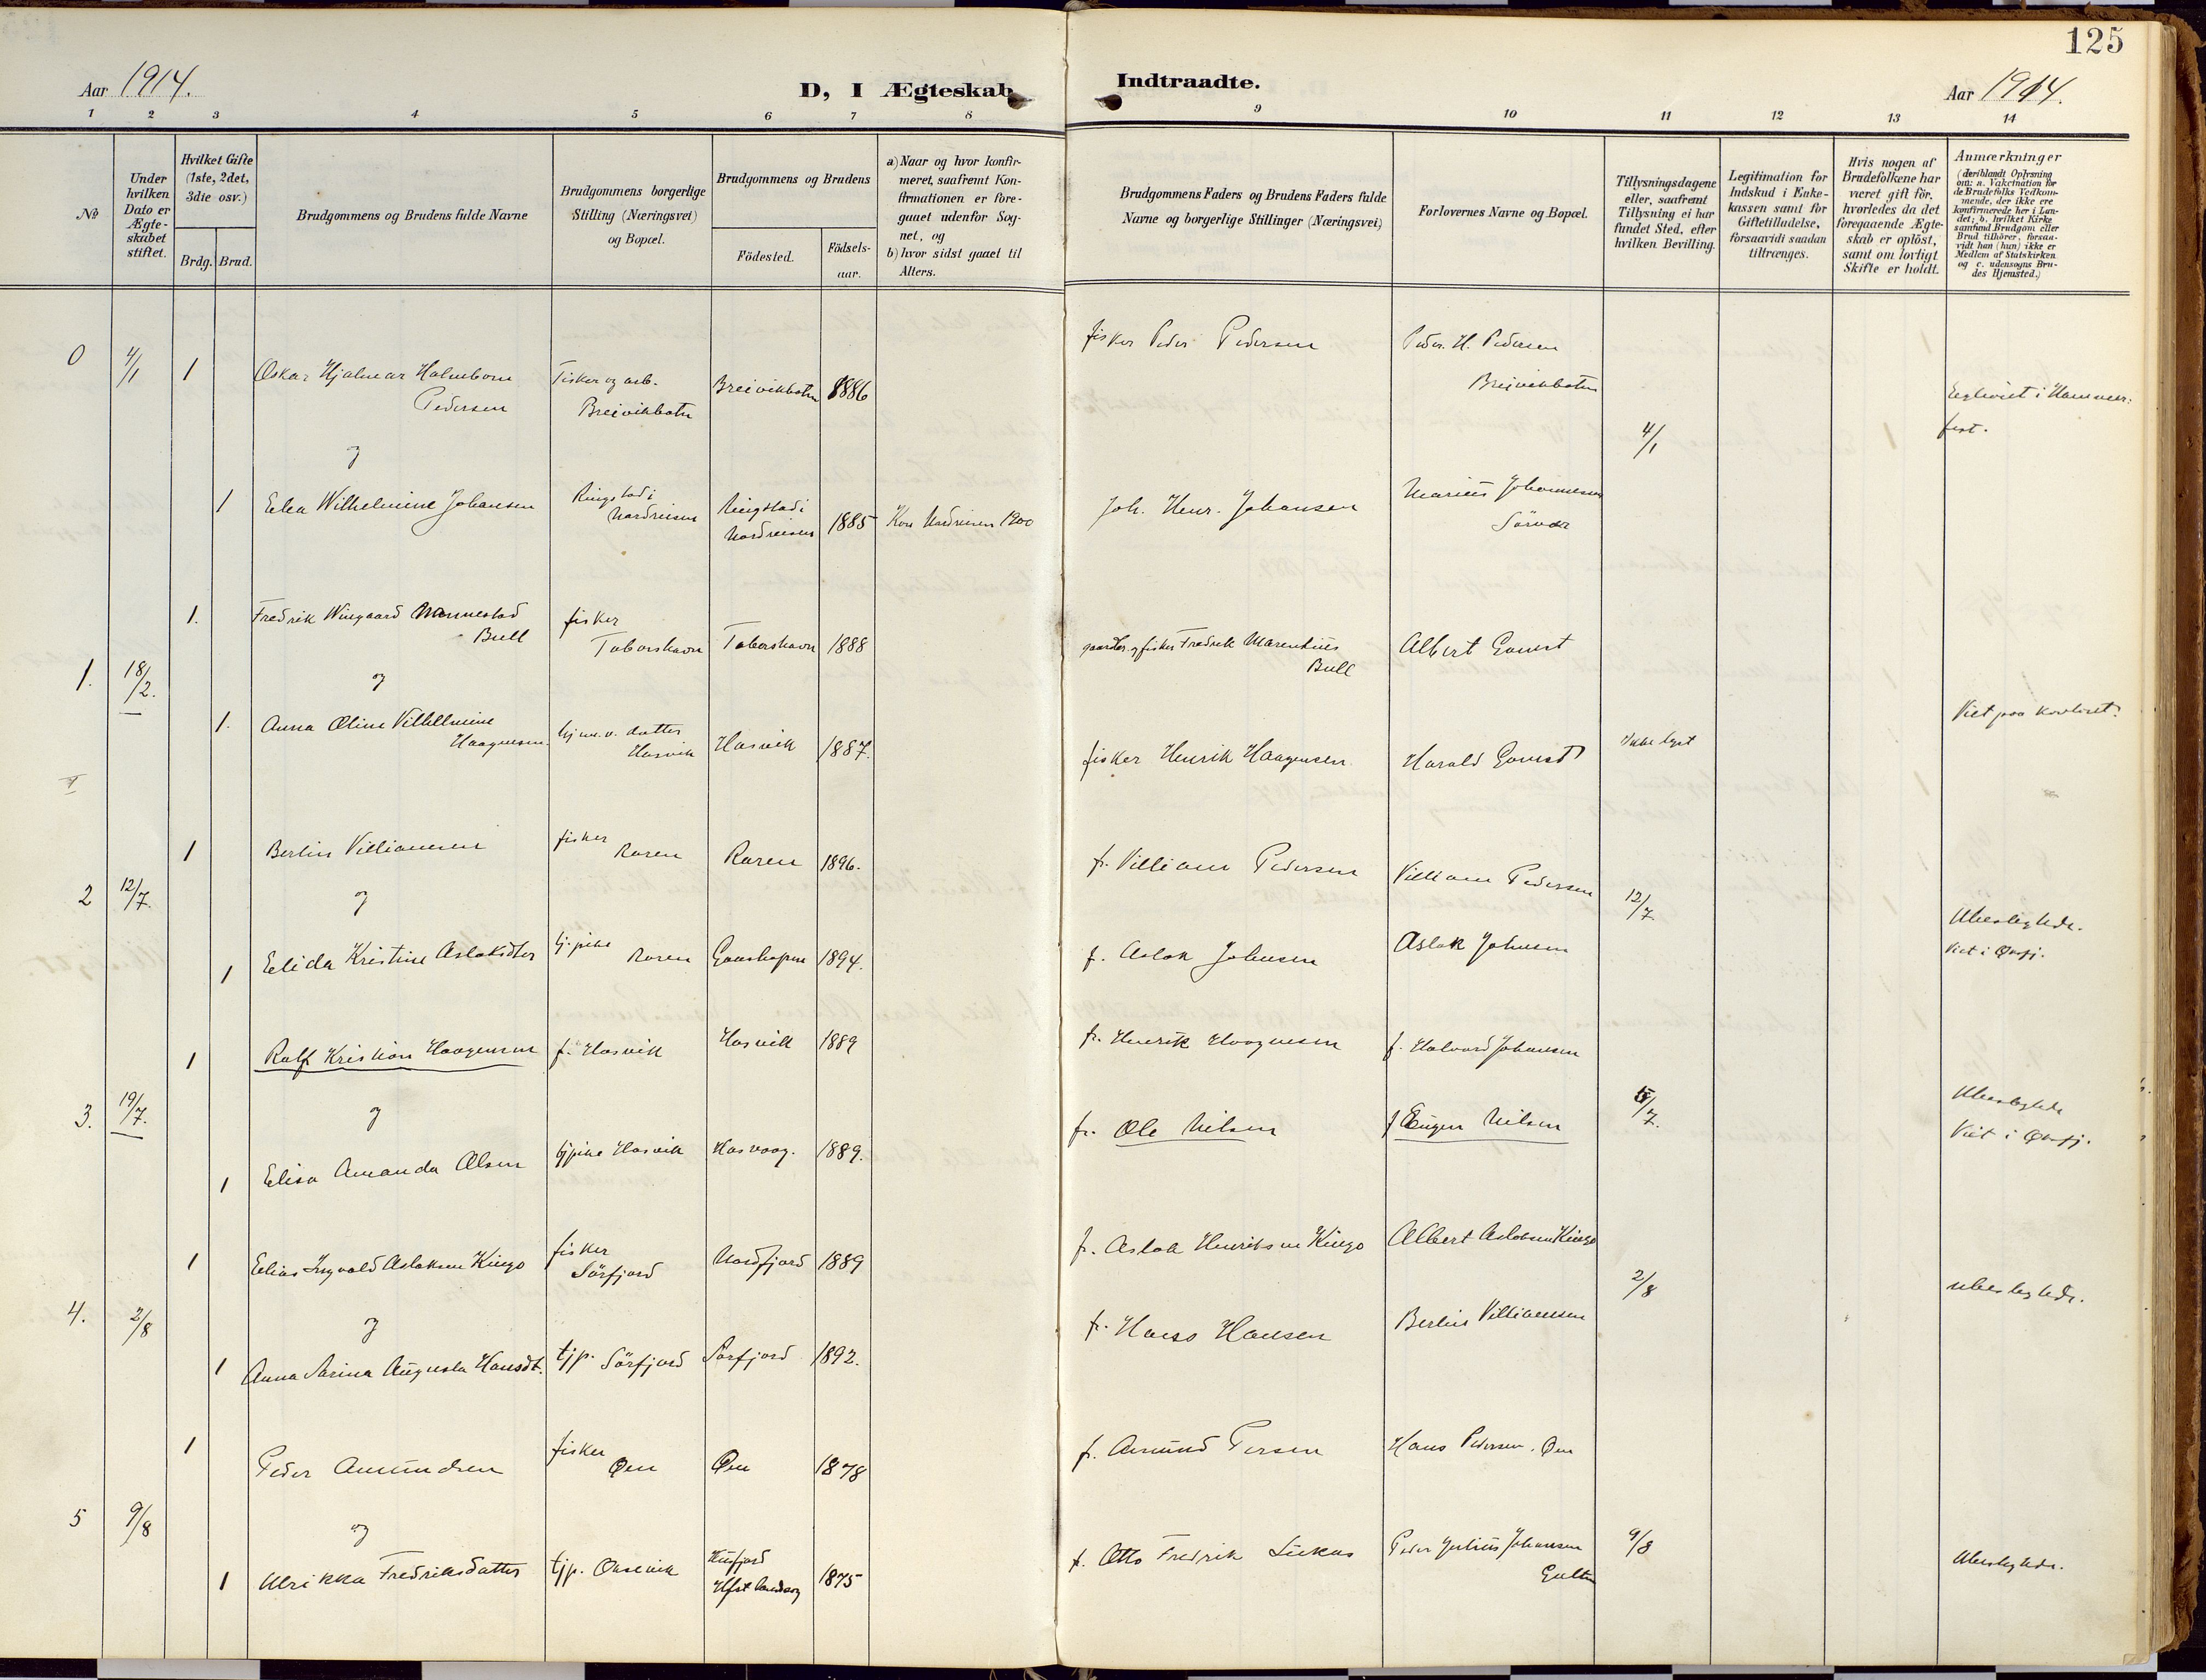 125
Aar 1914.
D, I Ægteskab
Indtraadte.
Aar 1914.
1 2 3 4 5 6 7 8 9 10 11 12 13 14
No
Under
hvilken
Dato er
Ægte-
skabet
stiftet.
Hvilket Gifte
(1ste, 2det,
3die osv.)
Brdg. Brud.
Brudgommens og Brudens fulde Navne
Brudgommens borgerlige
Stilling (Næringsvei)
og Bopæl.
Brudgommens og Brudens
Födested.
Födsels-
aar.
a) Naar og hvor konfir-
meret, saafremt Kon-
firmationen er fore-
gaaet udenfor Sog-
net, og
b) hvor sidst gaaet til
Alters.
Brudgommens Faders og Brudens Faders fulde
Navne og borgerlige Stillinger (Næringsvei)
Forlovernes Navne og Bopæl.
Tillysningsdagene
eller, saafremt
Tillysning ei har
fundet Sted, efter
hvilken Bevilling.
Legitimation for
Indskud i Enke-
kassen samt for
Giftetilladelse,
forsaavidt saadan
tiltrænges.
Hvis nogen af
Brudefolkene har
været gift för,
hvorledes da det
foregaaende Ægte-
skab er oplöst,
samt om lovligt
Skifte er holdt.
Anmærkninger
(deriblandt Oplysning
om: a. Vakcination for
de Brudefolks Vedkom-
mende, der ikke ere
konfirmerede her i Lan-
det; b. hvilket Kirke
samfund Brudgom eller
Brud tilhörer, forsaa-
vidt han (hun) ikke er
Medlem af Statskirken
og c. udensogns Bru-
des Hjemsted.)
0 4/1 1 Oskar Hjalmar Holmboe
Pedersen
Fisker og arb.
Breivikbotn
Breivikbotn 1886
fisker Peder Pedersen
Peder H. Pedersen
Breivikbotn
4/1
i Hammer-
fest.
og
1 Elea Wilhelmine Johansen
Ringstad i
Nordreisen
Ringstad i
Nordreisen
1885 Kon Nordreisen 1900
Joh. Henr. Johansen
Marius Johannesen
Sörvær
1. 18/2. 1. Fredrik Wingaard Mannestad
Bull
fisker
Taborshavn Taborshavn 1888
gaardbr. og fisker Fredrik Marentius
Bull
Albert Gomst
og
1. Anna Oline Vilhelmine
Haagensen.
hjmv. datter
Hasvik Hasvik 1887.
fisker Henrik Haagensen
Harald Gomst
Ikke lyst
Viet paa kontoret.
2 12/7. 1 Berlin Villiamsen
fisker
Karen Karen 1896.
fr. Villiam Pedersen Villiam Pedersen
12/7
og
1 Elida Kristine Aslaksdtr
tj. pike
Karen Gaashopen 1894.
f. Aslak Johnsen Aslak Johnsen
Ubeslegtede.
Viet i Øksfj.
3. 19/7. 1 Ralf Kristian Haagensen f. Hasvik Hasvik 1889
fr. Henrik Haagensen f. Halvard Johansen
5/7.
og
1 Elisa Amanda Olsen tjpike Hasvik Hasvaag. 1889.
fr. Ole Nilsen f Eugen Nilsen
Ubeslegtede
Viet i Øksfj.
4. 2/8 1 Elias Ingvald Aslaksen Kingo
fisker
Sörfjord Nordfjord 1889
fr. Aslak Henriksen Kingo Albert Aslaksen Kingo
2/8
og
1 Anna Sarina Augusta Hansdt. tjp. Sörfjord Sörfjord 1892.
fr. Hans Hansen Berlin Villiamsen
ubeslegtede.
5 9/8 1 Peder Amundsen
fisker
Øen Øen 1878
fr. Amund Persen Hans Pedersen. Øen
og
1 Ulrikka Fredriksdatter tjp. Oksevik
Kufjord
1875
f. Otto Fredrik Lukas
Peder Julius Johansen
Gultn
9/8
Ubeslegtede.